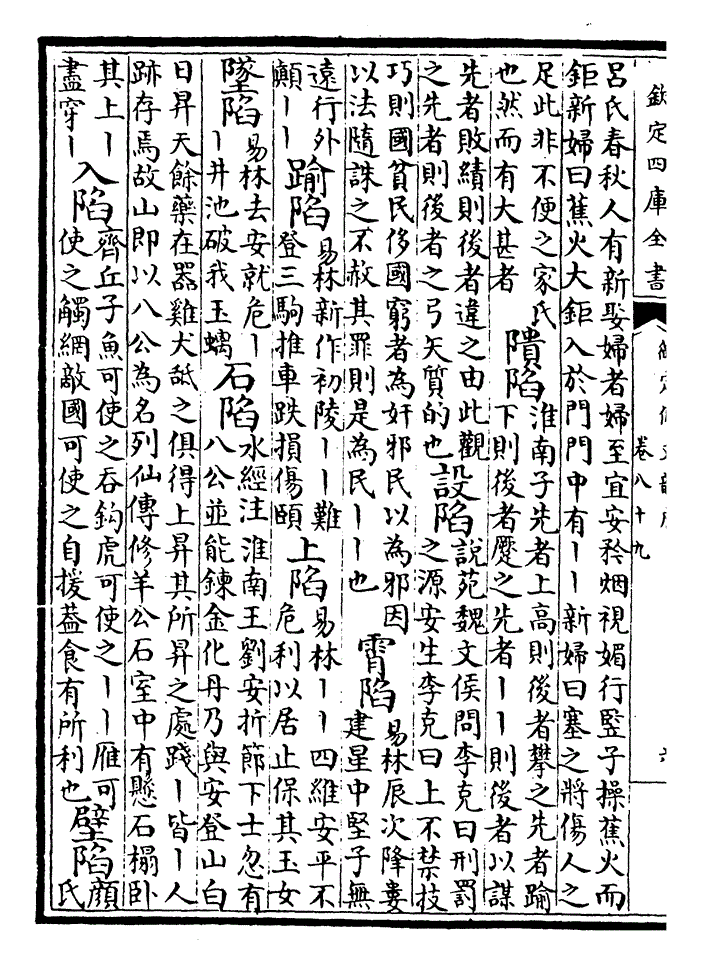 欽定四庫全書
卷八十九
呂氏春秋人有新娶婦者婦至宜安矜烟視媚行豎子操蕉火而
鉅新婦曰蕉火大鉅入於門門中有丨丨新婦曰塞之將傷人之
足此非不便之家氏
也然而有大甚者
隤陷
淮南子先者上高則後者攀之先者踰
下則後者蹷之先者丨丨則後者以謀
先者敗績則後者違之由此觀
之先者則後者之弓矢質的也
設陷
說苑魏文侯問李克曰刑罰
之源安生李克曰上不禁技
巧則國貧民侈國窮者為奸邪民以為邪因
以法隨誅之不赦其罪則是為民丨丨也
霄陷
易林辰次降婁
建星中堅子無
遠行外
顛丨丨
踰陷
易林新作初陵丨丨難
登三駒推車跌損傷頤
上陷
易林丨丨四維安平不
危利以居止保其玉女
墜陷
易林去安就危丨
丨井池破我玉螭
石陷
水經注淮南王劉安折節下士忽有
八公並能鍊金化丹乃與安登山白
日昇天餘藥在器雞犬舐之俱得上昇其所昇之處踐丨皆丨人
跡存焉故山即以八公為名列仙傳修羊公石室中有懸石榻臥
其上丨
盡穿丨
入陷
齊丘子魚可使之吞鈎虎可使之丨丨雁可
使之觸網敵國可使之自援葢食有所利也
壁陷
顔
氏